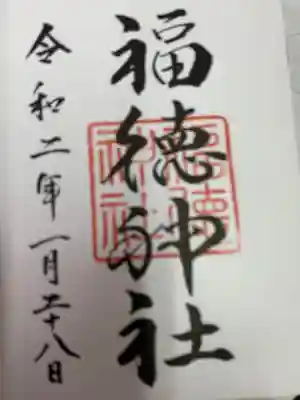 福徳神社
令和二年一月二十八日